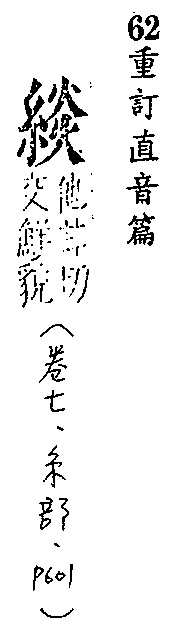 62重訂直音篇
緂
他甘切
鮮貌
(卷七、糸部、P601)